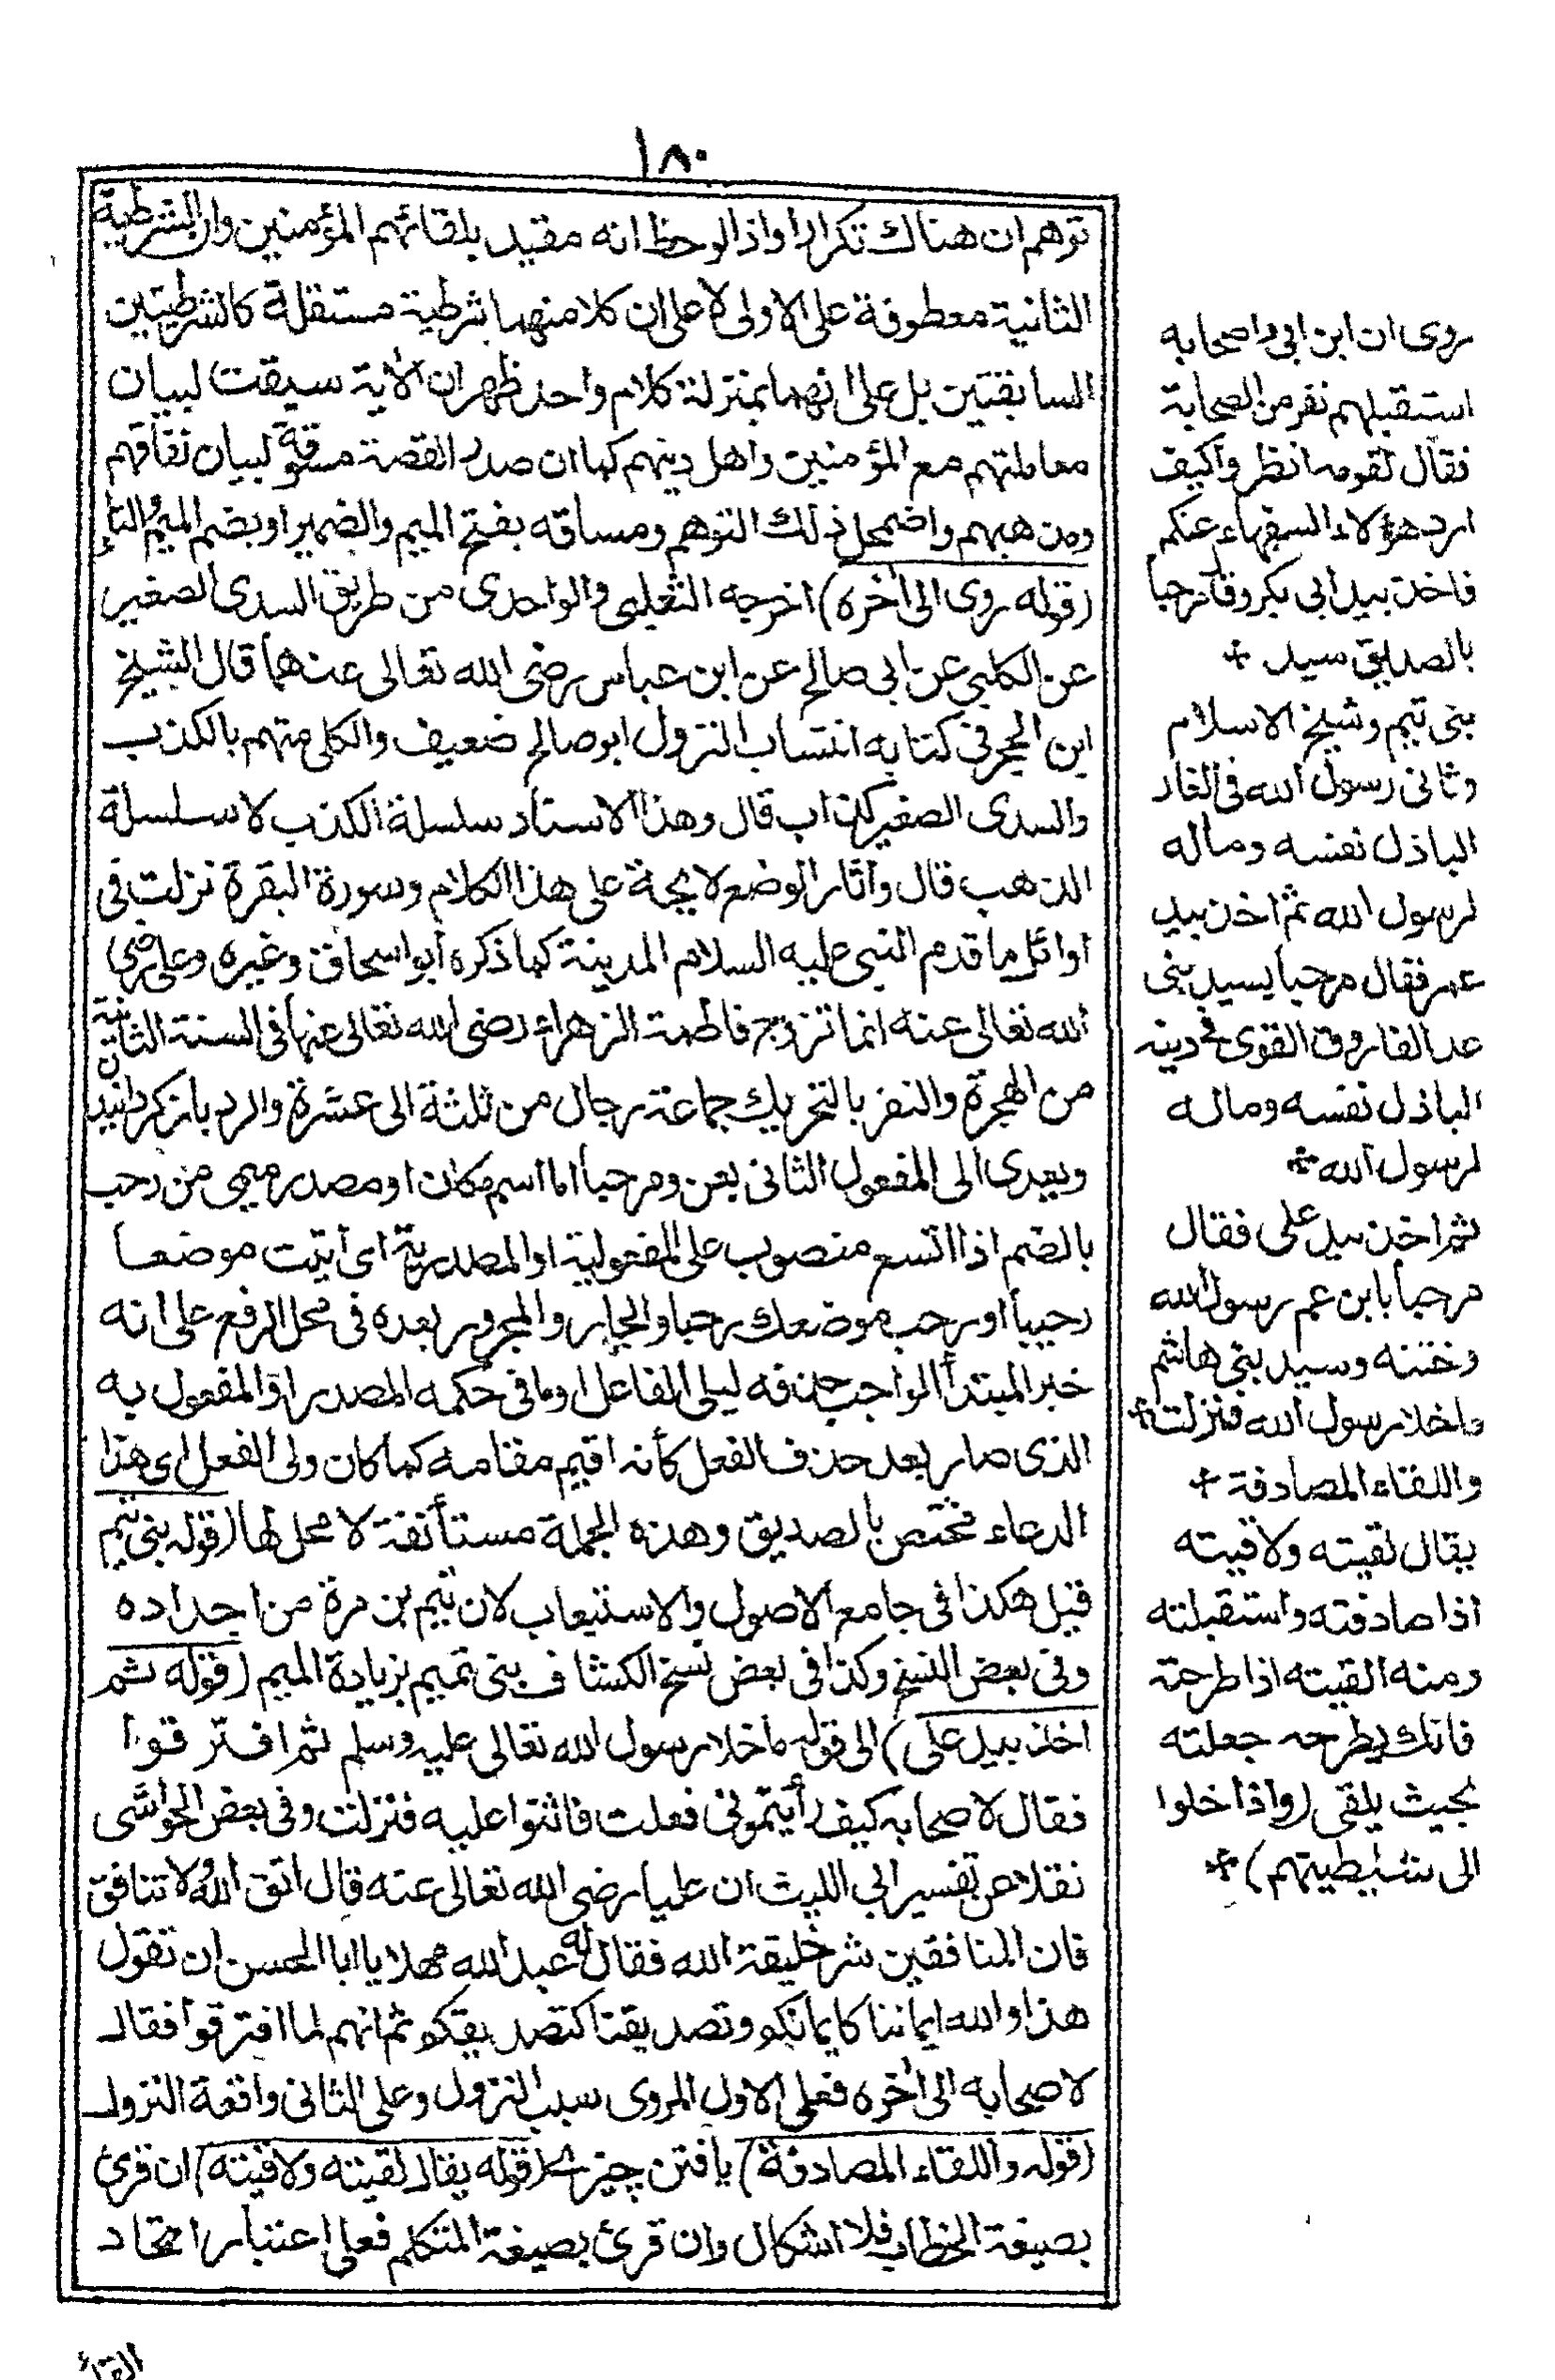 ١٨٠
توهم ان هناك تكرارا واذا لوحظ انه مقيد بلقائهم المؤمنين وان الشرطية
الثانية معطوفة على الاولى لا على ان كلا منهما شرطية مستقلة كالشرطيتين
السابقتين بل على انهما بمنزلة كلام واحد ظهر ان الآية سيقت لبيان
معاملتهم مع المؤمنين واهل دينهم كما ان صدر القصة مسوقة لبيان نفاقهم
ومذهبهم واضمحل ذلك التوهم ومساقه بفتح الميم والضمير او بضم الميم والتاء
(قوله روى الى آخره) اخرجه الثعلبى والواحدى من طريق السدى الصغير
عن الكلبي عن ابى صالح عن ابن عباس رضى الله تعالى عنهما قال الشيخ
ابن الحجر فى كتابه انتساب النزول ابو صالح ضعيف والكلى متهم بالكذب
والسدى الصغير كذاب قال وهذا الاسناد سلسلة الكذب لا سلسلة
الذهب قال وآثار الوضع لايحة على هذا الكلام وسورة البقرة نزلت فى
اوائل ما قدم النبى عليه السلام المدينة كما ذكره ابو اسحاق وغيره وعلى رضى
الله تعالى عنه انما تزوج فاطمة الزهراء رضى الله تعالى عنها فى السنة الثانية
من الهجرة والنفر بالتحريك جماعة رجال من ثلثة الى عشرة والرد باز كردانيدن
ويعدى الى المفعول الثانى بعن ومرحبا اما اسم مكان او مصدر ميمى من رحب
بالضم اذا اتسع منصوب على المفعولية او المصدرية اى اتيت موضعا
رحيبا او رحب موضعك رحبا والجار والمجرور بعده فى محل الرفع على انه
خبر المبتدأ الواجب حذفه ليلى الفاعل او ما فى حكمه المصدر او المفعول به
الذى صار بعد حذف الفعل كأنه اقيم مقامه كما كان ولى الفعل اى هذا
الدعاء مختص بالصديق وهذه الجملة مستأنفة لا محل لها (قوله بنى تيم
قيل هكذا فى جامع الاصول والاستيعاب لان تيم بن مرة من اجداده
وفى بعض النسخ وكذا فى بعض نسخ الكشاف بنى تميم بزيادة الميم (قوله ثم
اخذ بيد على) الى قوله ما خلا رسول الله تعالى عليه وسلم ثم افترقوا
فقال لاصحابه كيف رأيتمونى فعلت فاثنوا عليه فنزلت وفى بعض الحواشى
نقلا من تفسير ابي الليث ان عليا رضى الله تعالى عنه قال اتق الله ولا تنافق
فان المنافقين شر خليقة الله فقال له عبد الله مهلا يا ابا الحسن ان تقول
هذا والله ايماننا كايمانكم وتصديقنا كتصديقكم ثم انهم لما افترقوا فقال
لاصحابه الى آخره فعلى الاول المروى سبب النزول وعلى الثانى واقعة النزول
(قوله واللقاء المصادفة) يافتن چيزے (قوله يقال لقيته ولاقيته) ان قرئ
بصيغة الخطاب فلا اشكال وان قرئ بصيغة المتكلم فعلى اعتبار اتحاد
القا
روى ان ابن ابى واصحابه
استقبلهم نفر من الصحابة
فقال لقومه انظروا كيف
ارد هؤلاء السفهاء عنكم
فاخذ بيد ابى بكر وقال مرحبا
بالصديق سيد +
بنى تيم وشيخ الاسلام
وثانى رسول الله فى الغار
الباذل نفسه وماله
لرسول الله ثم اخذ بيد
عمر فقال مرحبا بسيد بنى
عد الفاروق القوى فى دينه
الباذل نفسه وماله
لرسول الله +
ثم اخذ بيد على فقال
مرحبا بابن عم رسول الله
وختنه وسيد بنى هاشم
ما خلا رسول الله فنزلت +
واللقاء المصادفة +
يقال لقيته ولاقيته
اذا صادفته واستقبلته
ومنه القيته اذا طرحته
فانك بطرحه جعلته
بحيث يلقى (واذا خلوا
الى شيطينهم) +